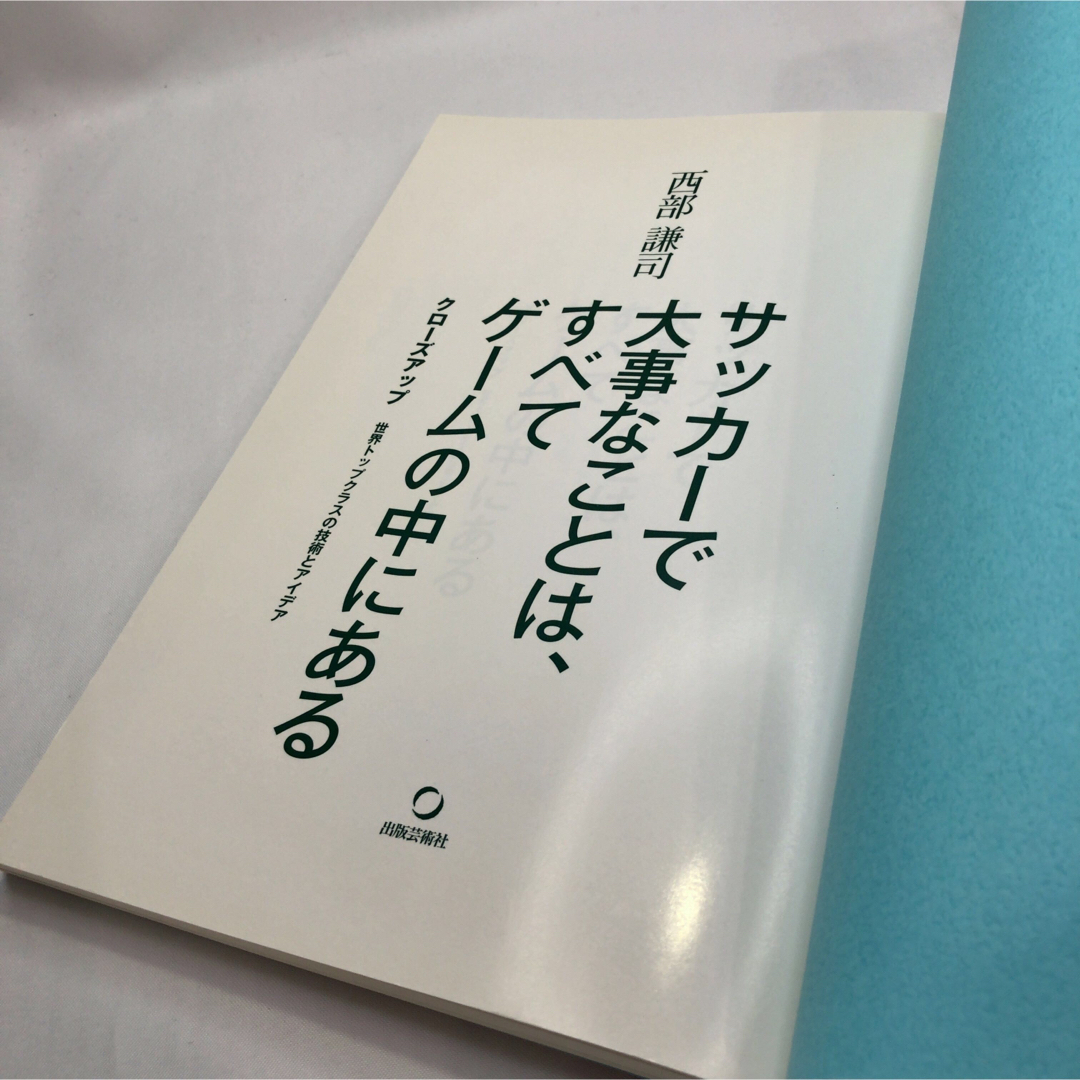 西部 謙司
サッカーで
大事なことは、
すべて
ゲームの中にある
クローズアップ
世界トップクラスの技術とアイデア
出版芸術社